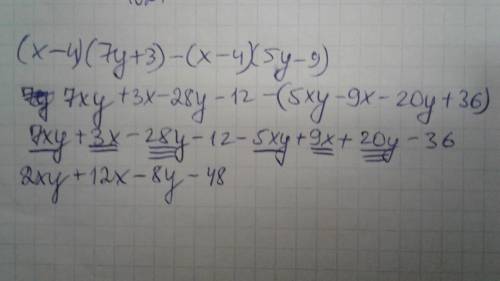 (x-4)(7y+3)-(x-4)(5y-9)
7xy+3x-28y-12-(5xy-9x-20y+36)
7xy+3x-28y-12-5xy+9x+20y-36
2xy+12x-8y-48